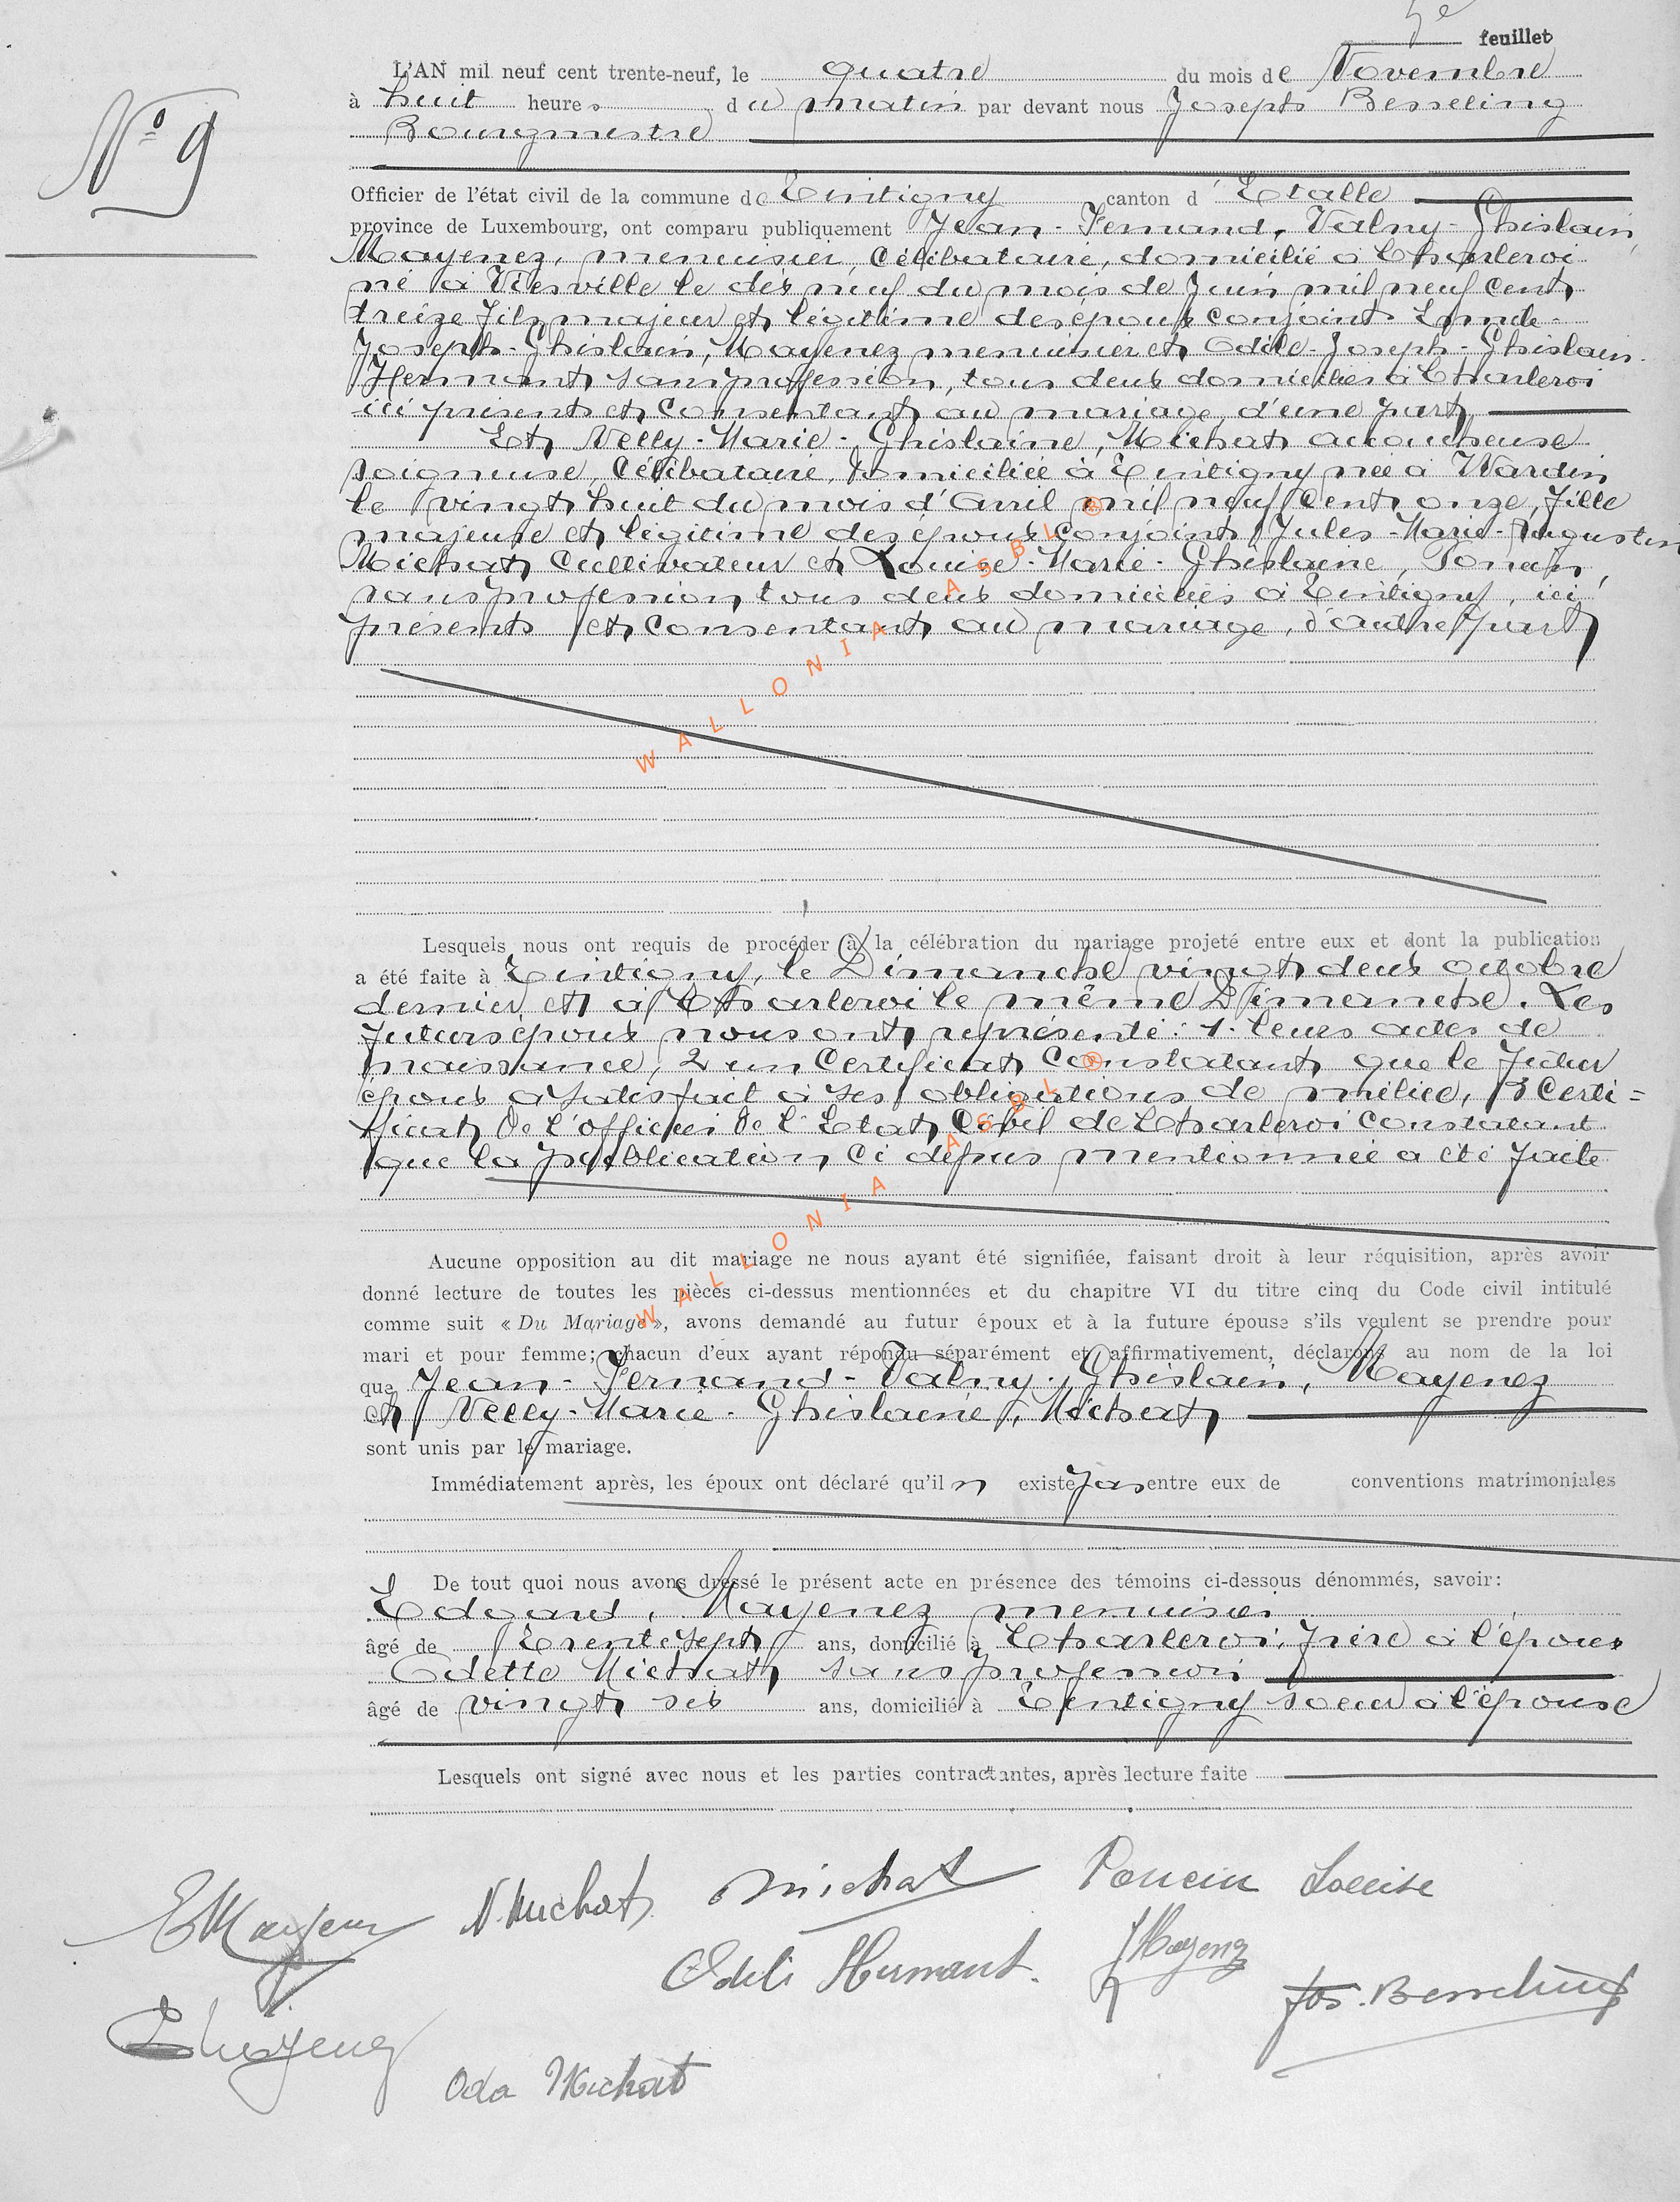 5e feuillet
N° 9
L'AN mil neuf cent trente-neuf, le quatre du mois de Novembre
à huit heures du matin par devant nous Joseph Besseling
Bourgmestre
Officier de l'état civil de la commune de Tintigny canton d'Etalle
province de Luxembourg, ont comparu publiquement Jean-Fernand, Valmy-Ghislain,
Mayenez, menuisier, célibataire, domicilié à Charleroi
né à Viesville le dix neuf du mois de Juin mil neuf cent
treize fils majeur et légitime des époux conjoints
Joseph-Ghislain, Mayenez menuisier et Odile-Joseph-Ghislain
Hermant sans profession, tous deux domiciliés à Charleroi
ici présents et consentant au mariage, d'une part
Et Nelly-Marie-Ghislaine, Michat accoucheuse
soigneuse, célibataire, domiciliée à Tintigny née à Wardin
le vingt huit du mois d'Avril mil neuf cent onze, fille
majeure et légitime des époux conjoints Jules-Marie-Augustin
Michat cultivateur et Louise-Marie-Ghislaine, Poncin,
sans profession tous deux domiciliés à Tintigny, ici
présents et consentant au mariage, d'autre part
Lesquels nous ont requis de procéder à la célébration du mariage projeté entre eux et dont la publication
a été faite à Tintigny, le Dimanche vingt deux octobre
dernier et à Charleroi le même Dimanche. Les
futurs époux nous ont représenté : 1. leurs actes de
naissance, 2 un certificat constatant que le futur
époux a satisfait à ses obligations de milice, 3 Certi=
ficat de l'officier de l'Etat Civil de Charleroi constatant
que la publication ci dessus mentionnée a été faite
Aucune opposition au dit mariage ne nous ayant été signifiée, faisant droit à leur réquisition, après avoir
donné lecture de toutes les pièces ci-dessus mentionnées et du chapitre VI du titre cinq du Code civil intitulé
comme suit « Du Mariage », avons demandé au futur époux et à la future épouse s'ils veulent se prendre pour
mari et pour femme; chacun d'eux ayant répondu séparément et affirmativement, déclarons au nom de la loi
que Jean-Fernand-Valmy-Ghislain, Mayenez
et Nelly-Marie-Ghislaine, Michat
sont unis par le mariage.
Immédiatement après, les époux ont déclaré qu'il n existe pas entre eux de conventions matrimoniales
De tout quoi nous avons dressé le présent acte en présence des témoins ci-dessous dénommés, savoir:
Edgard, Mayenez menuisier
âgé de Trente sept ans, domicilié à Charleroi, frère à l'époux
Odette Michat sans profession
âgé de vingt six ans, domicilié à Tintigny soeur à l'épouse
Lesquels ont signé avec nous et les parties contractantes, après lecture faite
N. Michat Michat Poncin Louise
Odile Hermant. Mayenez Jos. Besseling
Oda Michat
WALLONIA ASBL ®
WALLONIA ASBL ®